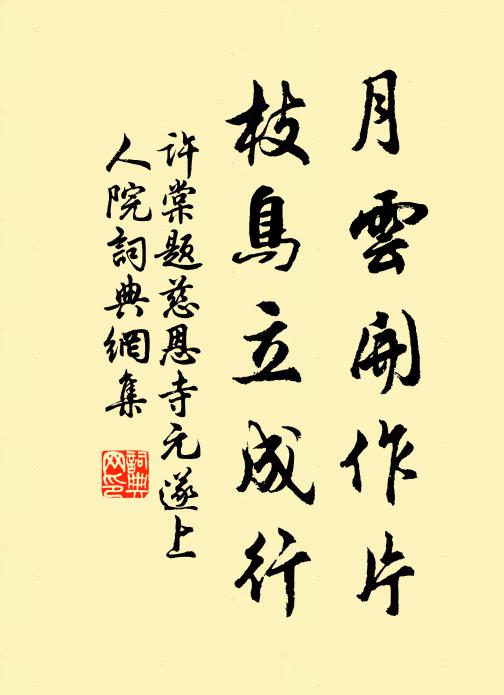 月雲開作片
枝鳥立成行
許棠題慈恩寺元遂上
人院詞典網集
詞典
网印